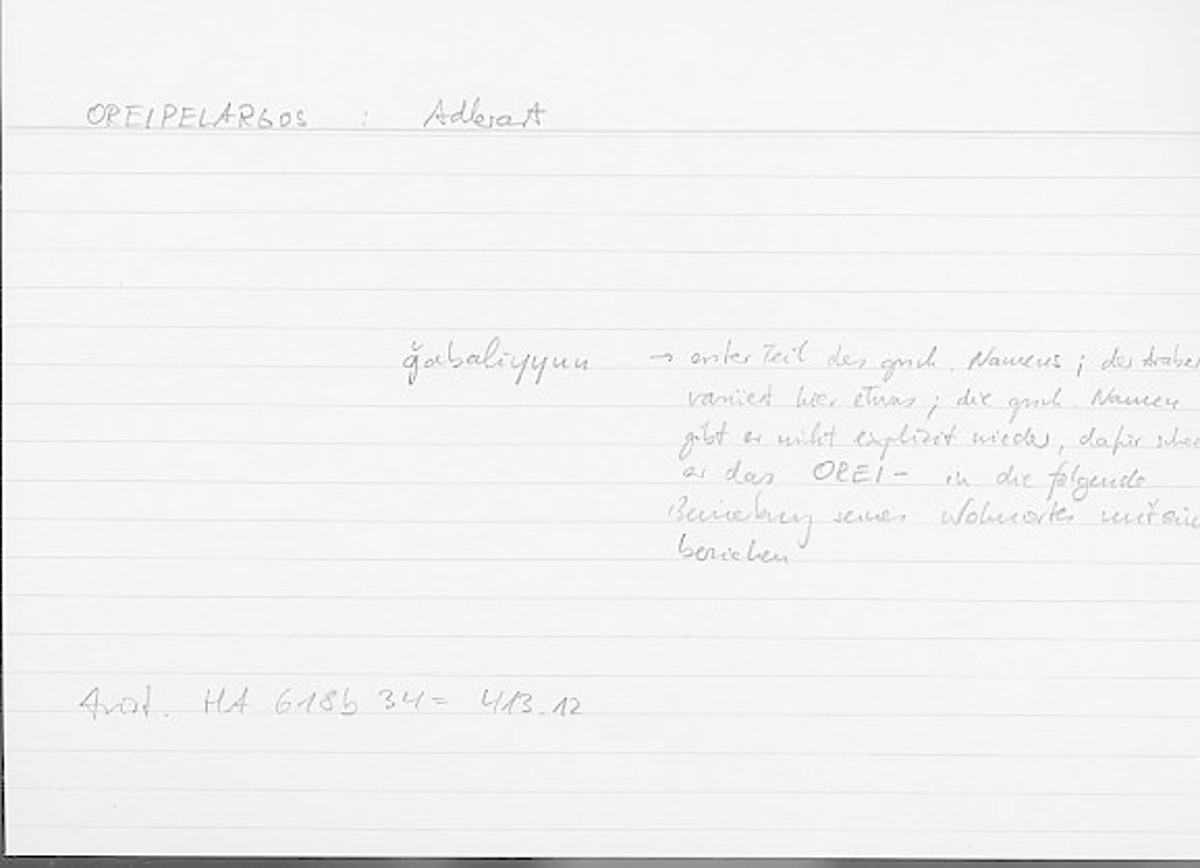 OREIPELARGOS : Adlerart
ǧabaliyyun → erster Teil des griech. Namens; der Araber
variiert hier etwas; die griech. Namen
gibt er nicht explizit wieder, dafür
er das OREI- in die folgende
seines Wohnortes
beziehen
Arist. HA 618b 34 = 413.12